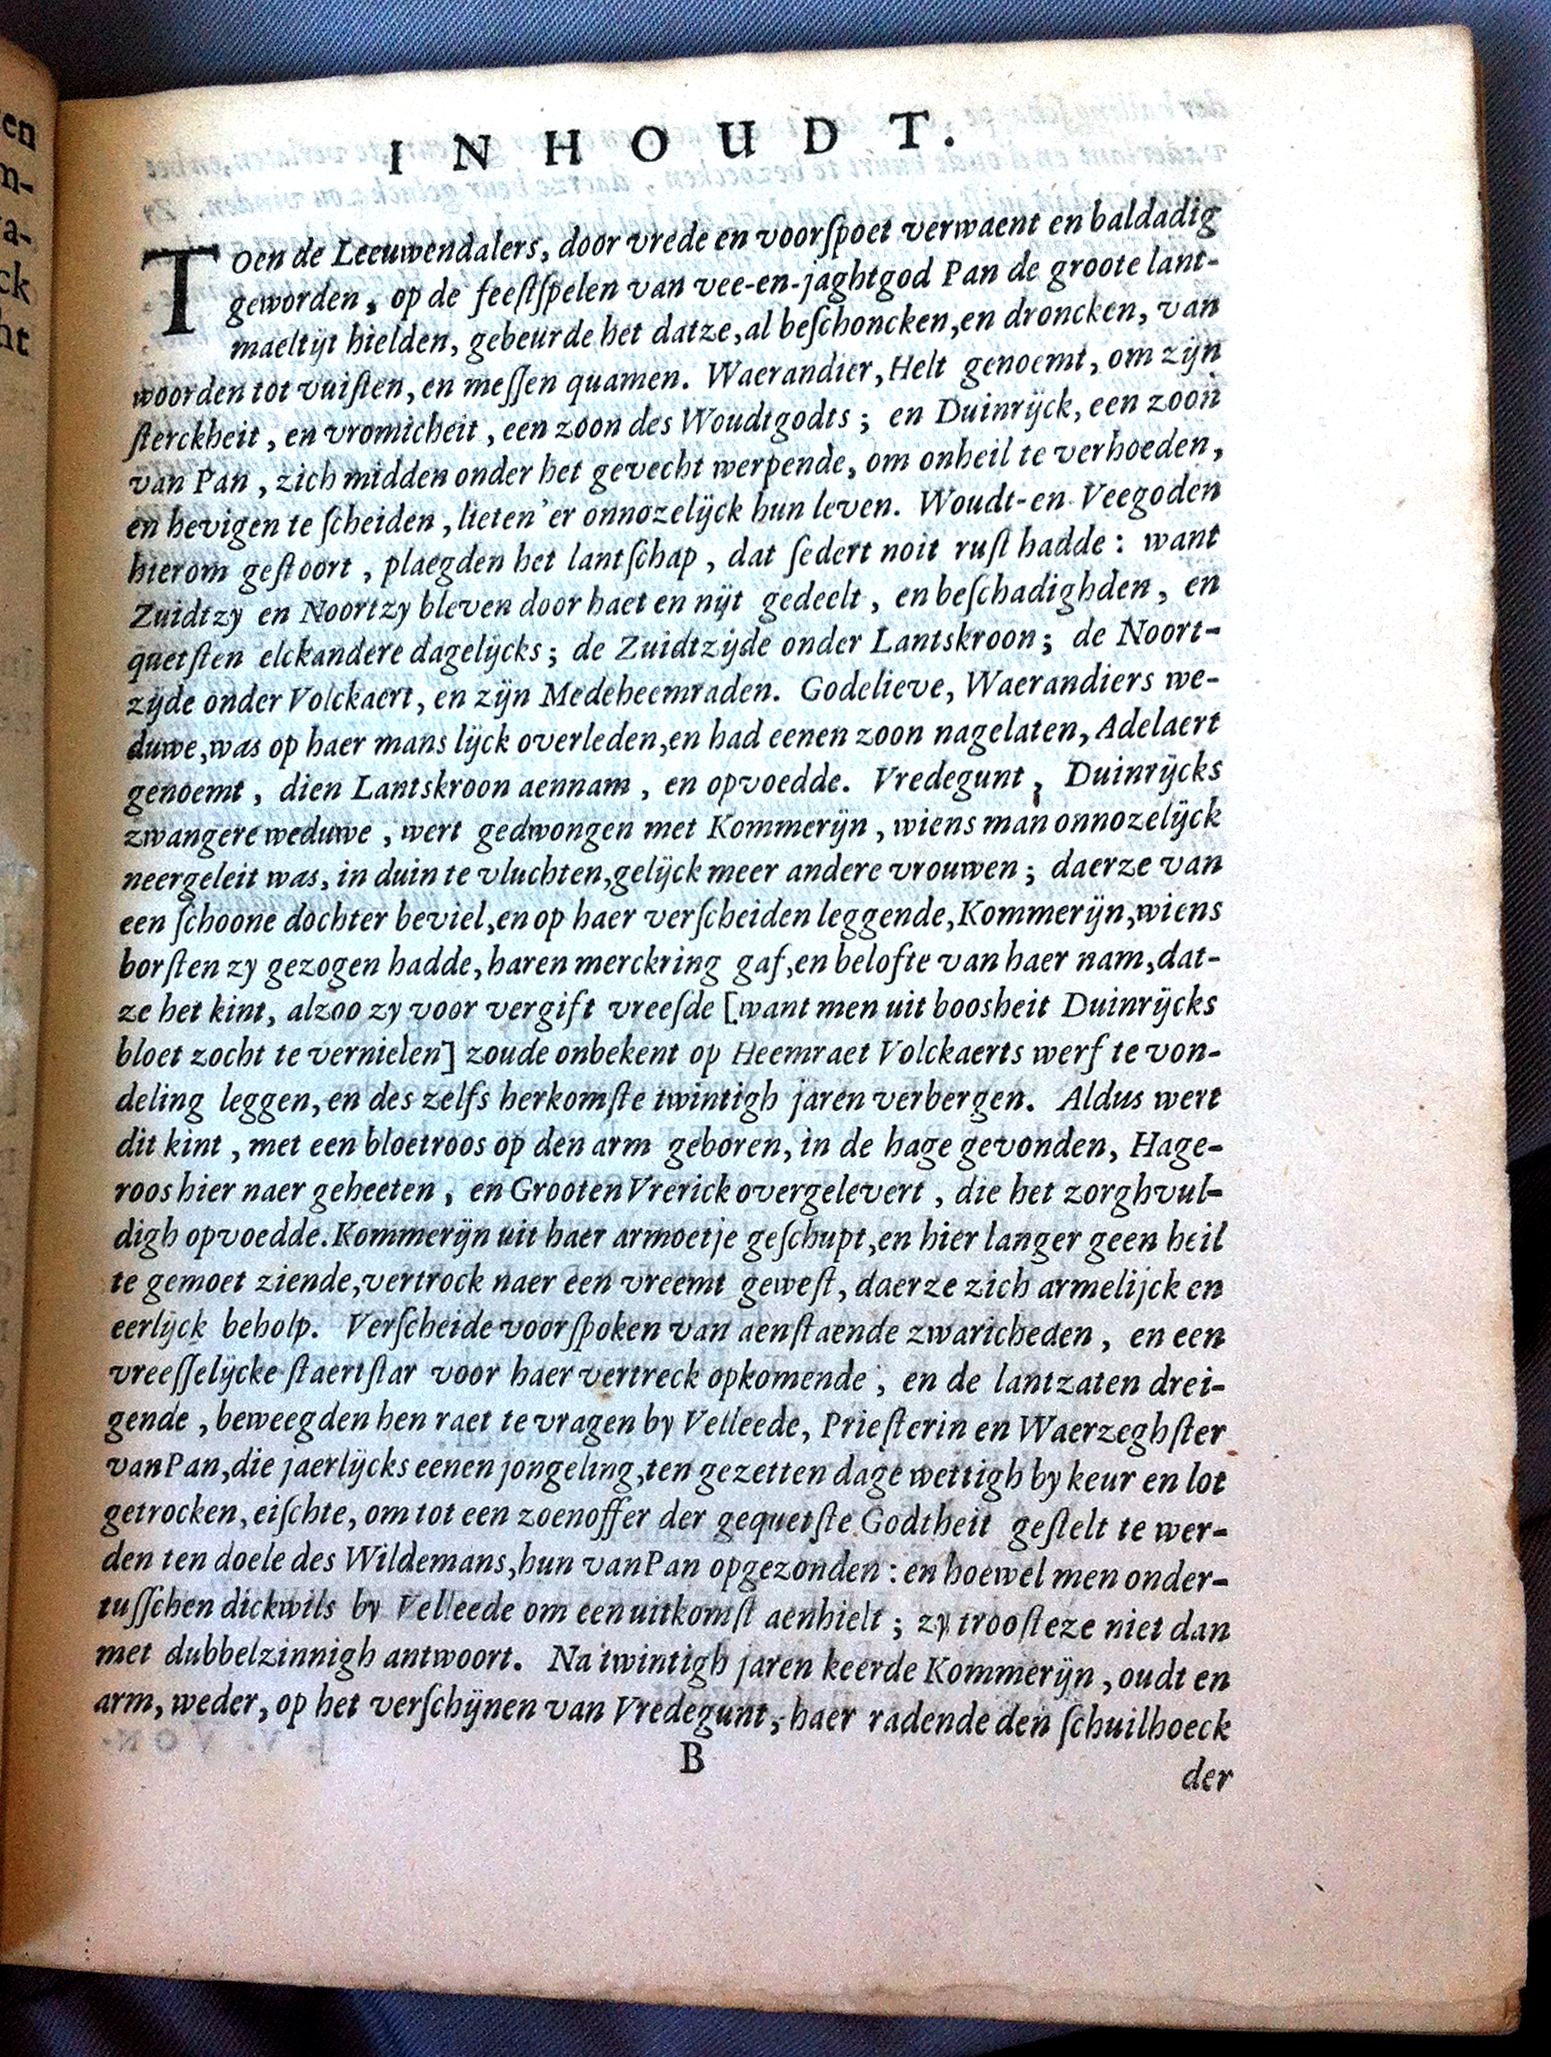 INHOUDT.
TOen de Leeuwendalers, door vrede en voorſpoet verwaent en baldadig
geworden, op de feeſtſpelen van vee-en-jaghtgod Pan de groote lant-
maeltijt hielden, gebeurde het datze, al beſchoncken, en droncken, van
woorden tot vuiſten, en meſſen quamen. Waerandier, Helt genoemt, om zijn
ſterckheit, en vromicheit, een zoon des Woudtgodts; en Duinrijck, een zoon
van Pan, zich midden onder het gevecht werpende, om onheil te verhoeden,
en hevigen te ſcheiden, lieten'er onnozelijck hun leven. Woudt-en Veegoden
hierom geſtoort, plaegden het lantſchap, dat ſedert noit ruſt hadde: want
Zuidtzy en Noortzy bleven door haet en nijt gedeelt, en beſchadighden, en
quetſten elckandere dagelijcks; de Zuidtzijde onder Lantskroon; de Noort-
zijde onder Volckaert, en zijn Medeheemraden. Godelieve, Waerandiers we-
duwe, was op haer mans lijck overleden, en had eenen zoon nagelaten, Adelaert
genoemt, dien Lantskroon aennam, en opvoedde. Vredegunt, Duinrijcks
zwangere weduwe, wert gedwongen met Kommerijn, wiens man onnozelijck
neergeleit was, in duin te vluchten, gelijck meer andere vrouwen; daerze van
een ſchoone dochter beviel, en op haer verſcheiden leggende, Kommerijn, wiens
borſten zy gezogen hadde, haren merckring gaf, en belofte van haer nam, dat-
ze het kint, alzoo zy voor vergift vreeſde [want men uit boosheit Duinrijcks
bloet zocht te vernielen] zoude onbekent op Heemraet Volckaerts werf te von-
deling leggen, en des zelfs herkomſte twintigh jaren verbergen. Aldus wert
dit kint, met een bloetroos op den arm geboren, in de hage gevonden, Hage-
roos hier naer geheeten, en Grooten Vrerick overgelevert, die het zorghvul-
digh opvoedde. Kommerijn uit haer armoetje geſchupt, en hier langer geen heil
te gemoet ziende, vertrock naer een vreemt geweſt, daerze zich armelijck en
eerlijck beholp. Verſcheide voorſpoken van aenſtaende zwaricheden, en een
vreeſſelijcke ſtaertſtar voor haer vertreck opkomende, en de lantzaten drei-
gende, beweegden hen raet te vragen by Velleede, Prieſterin en Waerzeghſter
van Pan, die jaerlijcks eenen jongeling, ten gezetten dage wettigh by keur en lot
getrocken, eiſchte, om tot een zoenoffer der gequetſte Godtheit geſtelt te wer-
den ten doele des Wildemans, hun van Pan opgezonden: en hoewel men onder-
tuſſchen dickwils by Velleede om een uitkomſt aenhielt; zy trooſteze niet dan
met dubbelzinnigh antwoort. Na twintigh jaren keerde Kommerijn, oudt en
arm, weder, op het verſchijnen van Vredegunt, haer radende den ſchuilhoeck
B
der
en
m-
a-
ck
ht